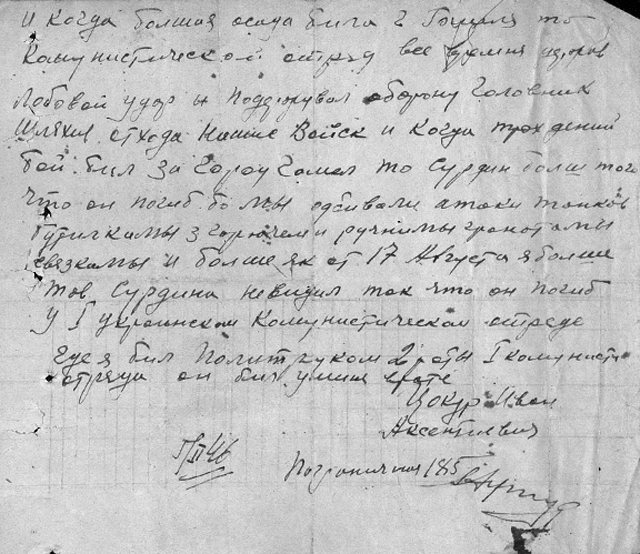 и когда большая осада била г Гомиля то
Комунистической отряд все время
Лобовой удор и поддержувал оборону Головних
Шляхив отхода Наших Войск и когда
бой бил за город Гомел то Сурдин
что он погиб бо мы одбивали атаки танков
Бутилкамы з горючем и ручнимы гранотамы
связкамы и больше як от 17 Августа я больше
тов Сурдина невидил так что он погиб
у I Украинском Комунистическом отреде
где я бил Политруком 2 роты I комунисти
отряда он бил у мине в роте
Цокур Иван
Аксентиевич
5/II 46
Погранична 185